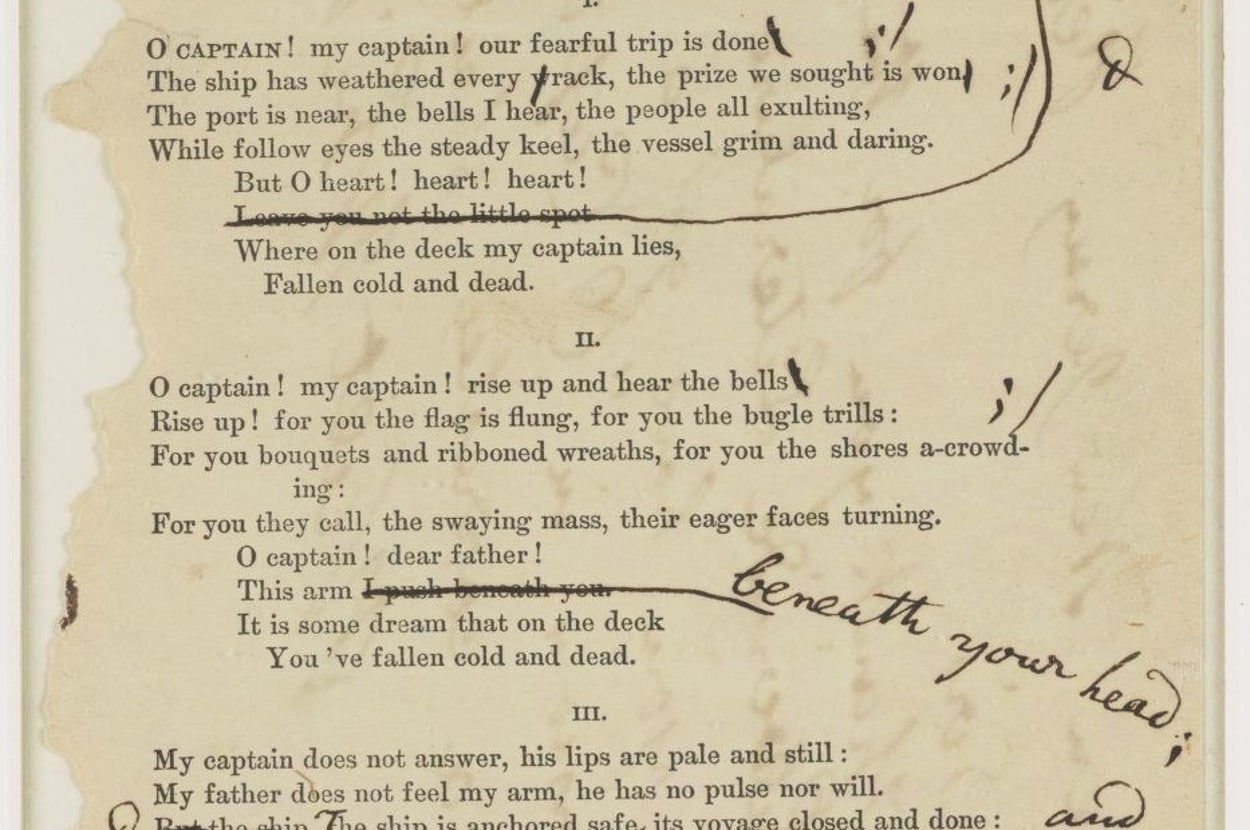 I.
O CAPTAIN! my captain! our fearful trip is done ;/
The ship has weathered every wrack, the prize we sought is won ;/
The port is near, the bells I hear, the people all exulting,
While follow eyes the steady keel, the vessel grim and daring.
But O heart! heart! heart!
Leave you not the little spot
Where on the deck my captain lies,
Fallen cold and dead.
II.
O captain! my captain! rise up and hear the bells ;/
Rise up! for you the flag is flung, for you the bugle trills:
For you bouquets and ribboned wreaths, for you the shores a-crowd-
ing:
For you they call, the swaying mass, their eager faces turning.
O captain! dear father!
This arm I push beneath you. beneath your head;
It is some dream that on the deck
You 've fallen cold and dead.
III.
My captain does not answer, his lips are pale and still:
My father does not feel my arm, he has no pulse nor will.
But the ship The ship is anchored safe, its voyage closed and done: and